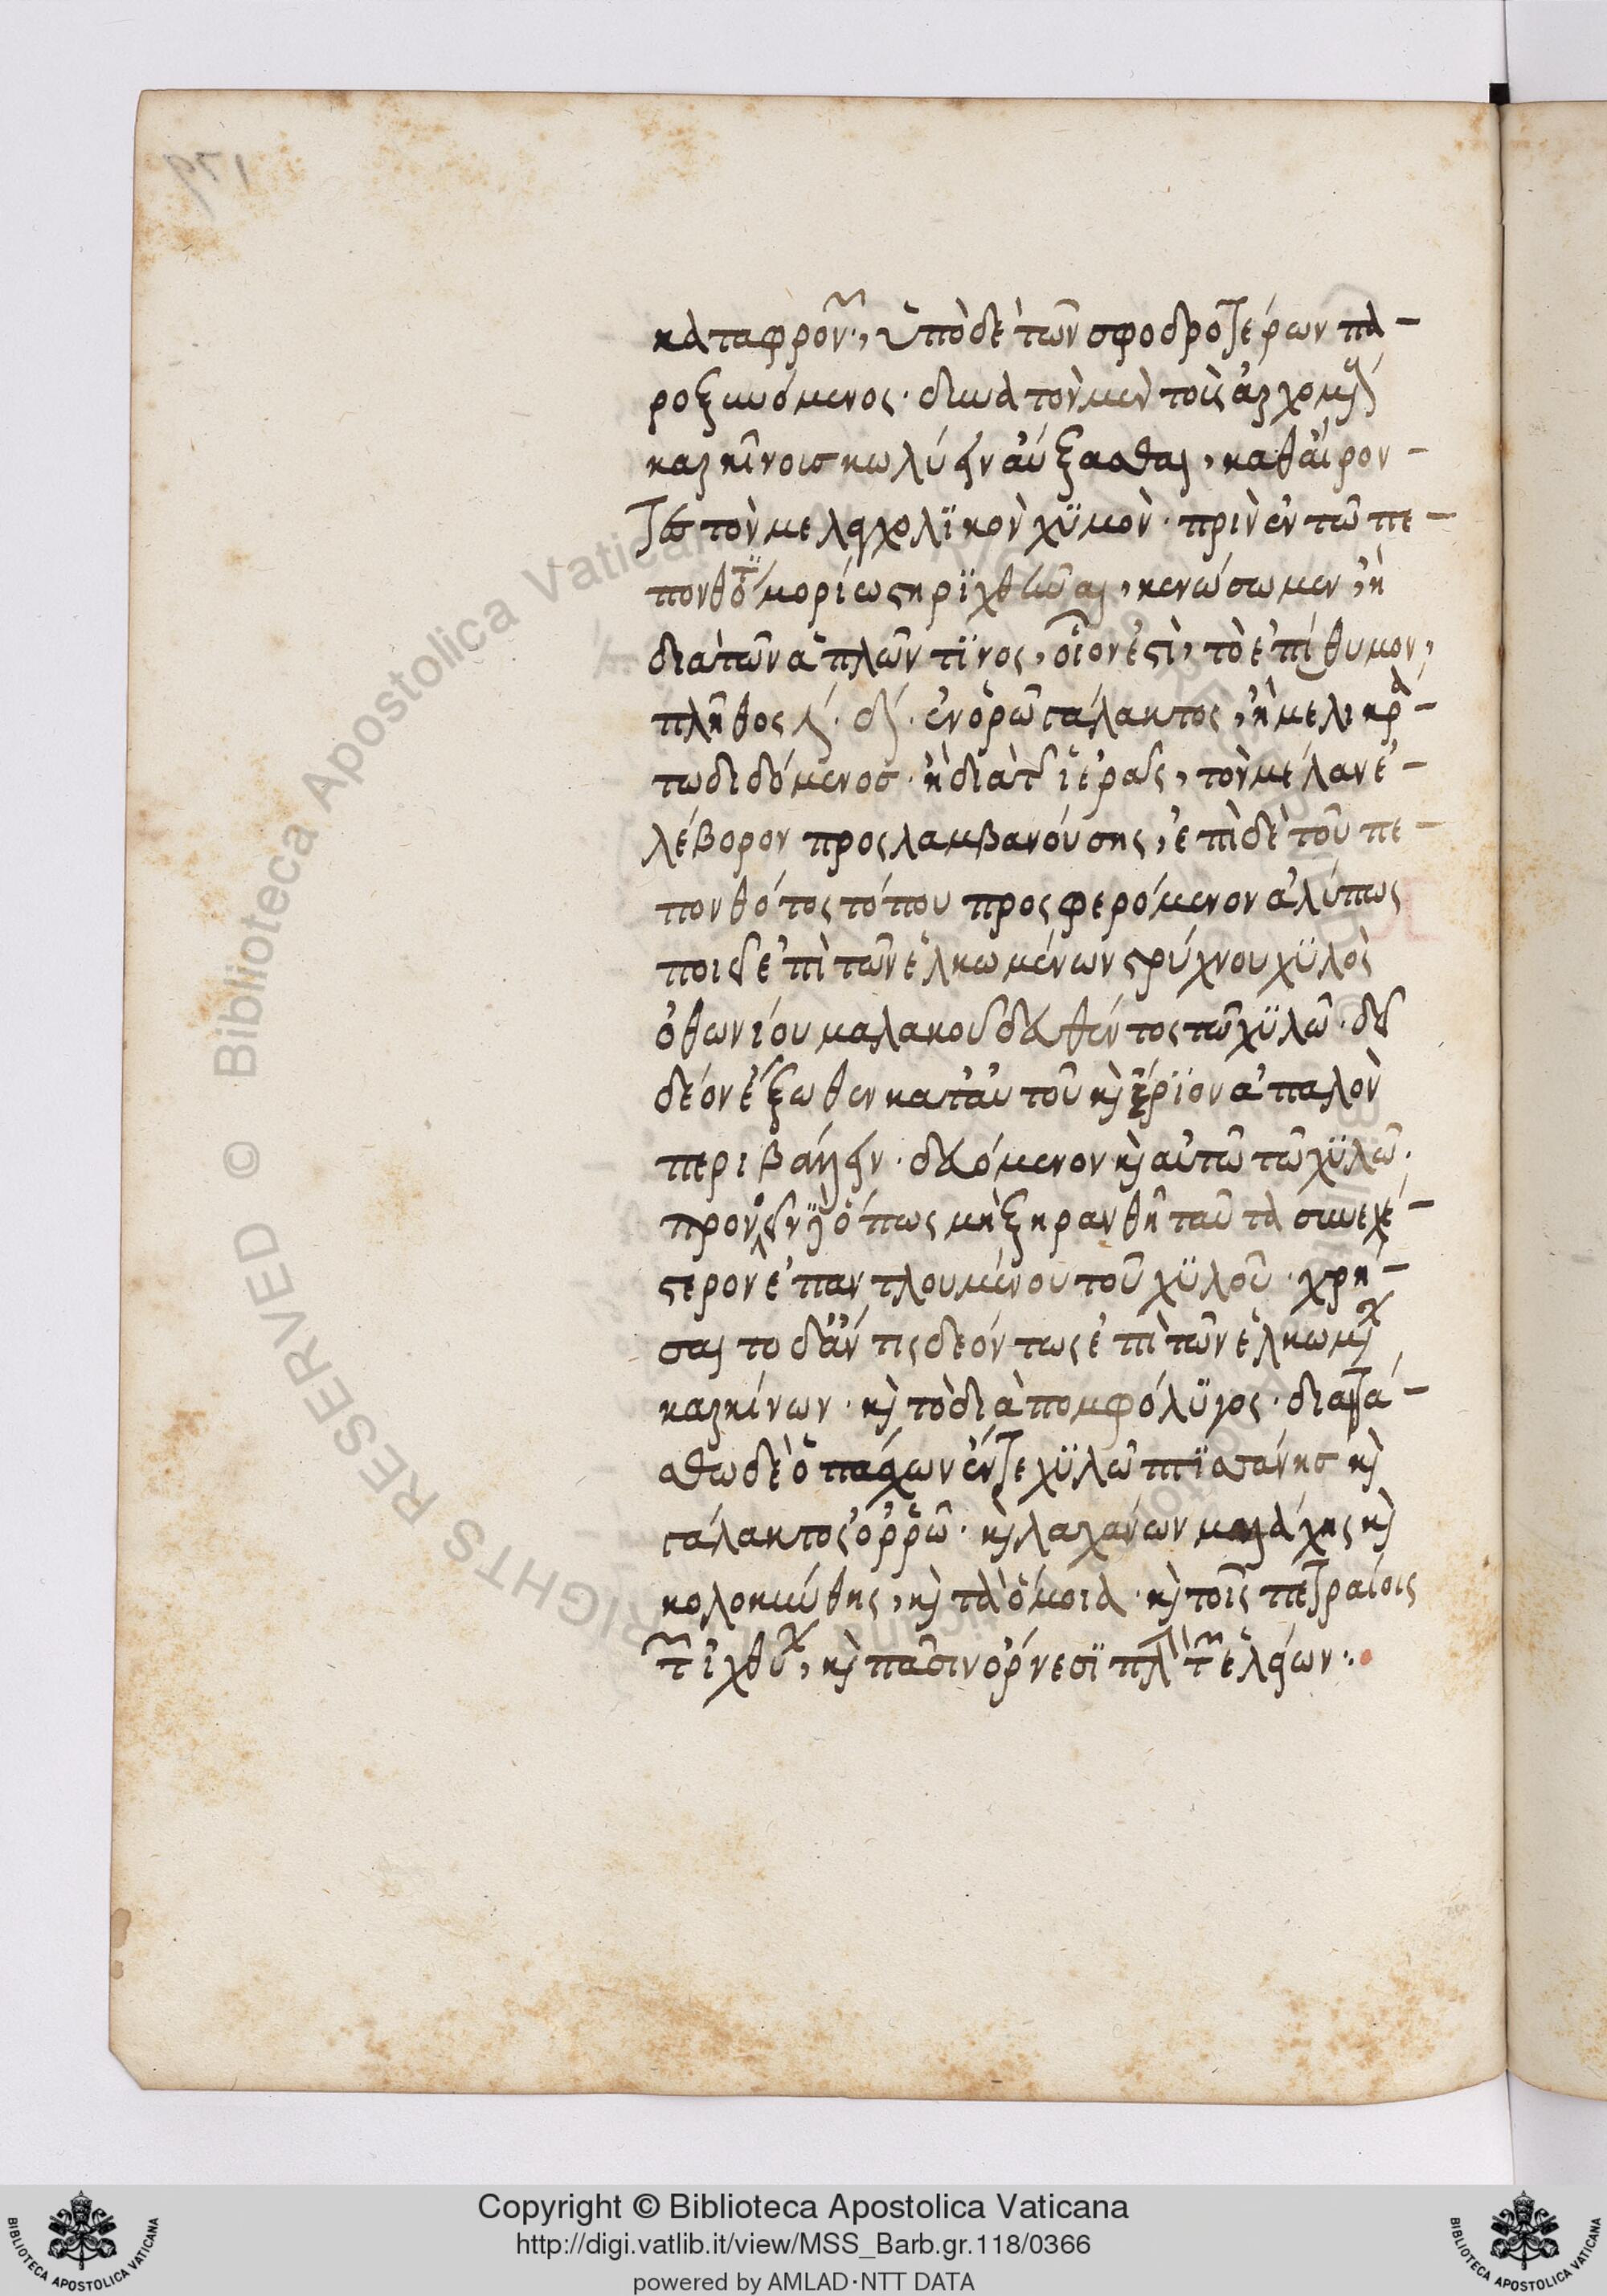 καταφρον, ὑπὸ δὲ τῶν σφοδροτέρων πα-
ροξυνόμενος· δυνατὸν μὲν τοὺς ἀρχομ
καρκίνοις κωλύειν αὔξασθαι, καθαίρον-
τας τὸν μελαγχολϊκὸν χϋμὸν· πρὶν ἐν τῶ πε-
πονθότϊ μορίω στηρϊχθῆναι, κενώσωμεν, ἢ
διὰ τῶν ἁπλῶν τϊνος, οἷον ἐστὶ, τὸ ἐπίθυμον,
πλῆθος δ ἐν ὀρῶ γάλακτος, ἢ μελικρά-
τω διδόμενος· ἢ διὰ τῆς ἱερᾶς, τὸν μέλαν ἐ-
λέβορον προσλαμβανούσης, ἐπὶ δὲ τοῦ πε-
πονθότος τόπου προσφερόμενον ἀλύπως
ποιεῖ ἐπὶ τῶν ἑλκωμένων στρύχνου χϋλὸς
ὀθωνίου μαλακοῦ δευθέντος τῶ χϋλῶ·
δέον ἔξωθεν κατ' αὐτοῦ καὶ ἔρϊον ἁπαλὸν
περιβάλλειν· δευόμενον καὶ αὐτῶ τῶ χϋλῶ·
προνοεῖν ὅπως μὴ ξηρανθῆ ταῦτα συνεχέ-
στερον ἐπαντλουμένου τοῦ χϋλοῦ· χρή-
σαιτο δ' ἄν τις δεόντως ἐπὶ τῶν ἑλκωμ
καρκίνων· καὶ τὸ διὰ πομφόλϋγος· διαιτά-
σθω δὲ ὁ πάσχων ἔν τε χϋλῶ πτϊσσάνης καὶ
γάλακτος ὀρρῶ· καὶ λαχάνων μαλάχης καὶ
κολοκύνθης, καὶ τὰ ὅμοια· καὶ τοῖς πετραίοις
τῶν ἰχθύων, καὶ πᾶσιν ὄρνεσϊ πλὴν τῶν ἑλείων:
Copyright © Biblioteca Apostolica Vaticana
http://digi.vatlib.it/view/MSS_Barb.gr.118/0366
powered by AMLAD·NTT DATA
BIBLIOTECA APOSTOLICA VATICANA
BIBLIOTECA APOSTOLICA VATICANA